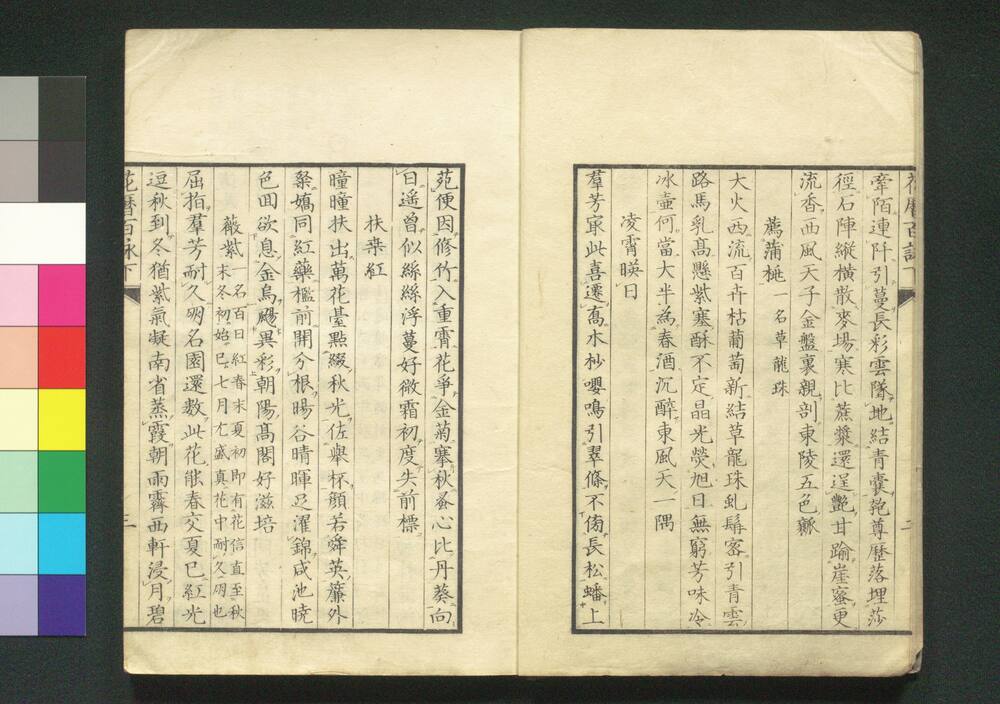 花曆百詠下
牽陌連阡引蔓長彩雲墜地結青囊匏尊歷落埋莎
徑石陣縱橫散麥場寒比蔗漿還逞艷甘踰崖蜜更
流香西風天子金盤裏親剖東陵五色瓤
蔫蒲桃一名草龍珠
大火西流百卉枯葡萄新結草龍珠虬鬚客引青雲
路馬乳高懸紫塞酥不定晶光熒旭日無窮芳味冷
冰壺何當大半為春酒沉醉東風天一隅
凌霄暎日
羣芳㝡此喜遷喬木杪嚶鳴引翠條不傍長松蟠上
二
苑便因修竹入重霄花爭金菊搴秋蚤心比丹葵向
日遙曾似絲絲浮蔓好微霜初度失前標
扶桒紅
曈曈扶出萬花臺點綴秋光佐舉杯顏若舜英簾外
槼嬌同紅藥檻前開分根暘谷晴暉足濯錦咸池曉
色回欲息金烏颺異彩朝陽高閣好滋培
薇紫一名百日紅春末夏初即有花信直至秋
末冬初始已七月尤盛真花中耐久朋也
屈指羣芳耐久朋名園還数此花能春交夏已紅光
逗秋到冬猶紫氣凝南省蒸霞朝雨霽西軒浸月碧
花曆百詠下
三